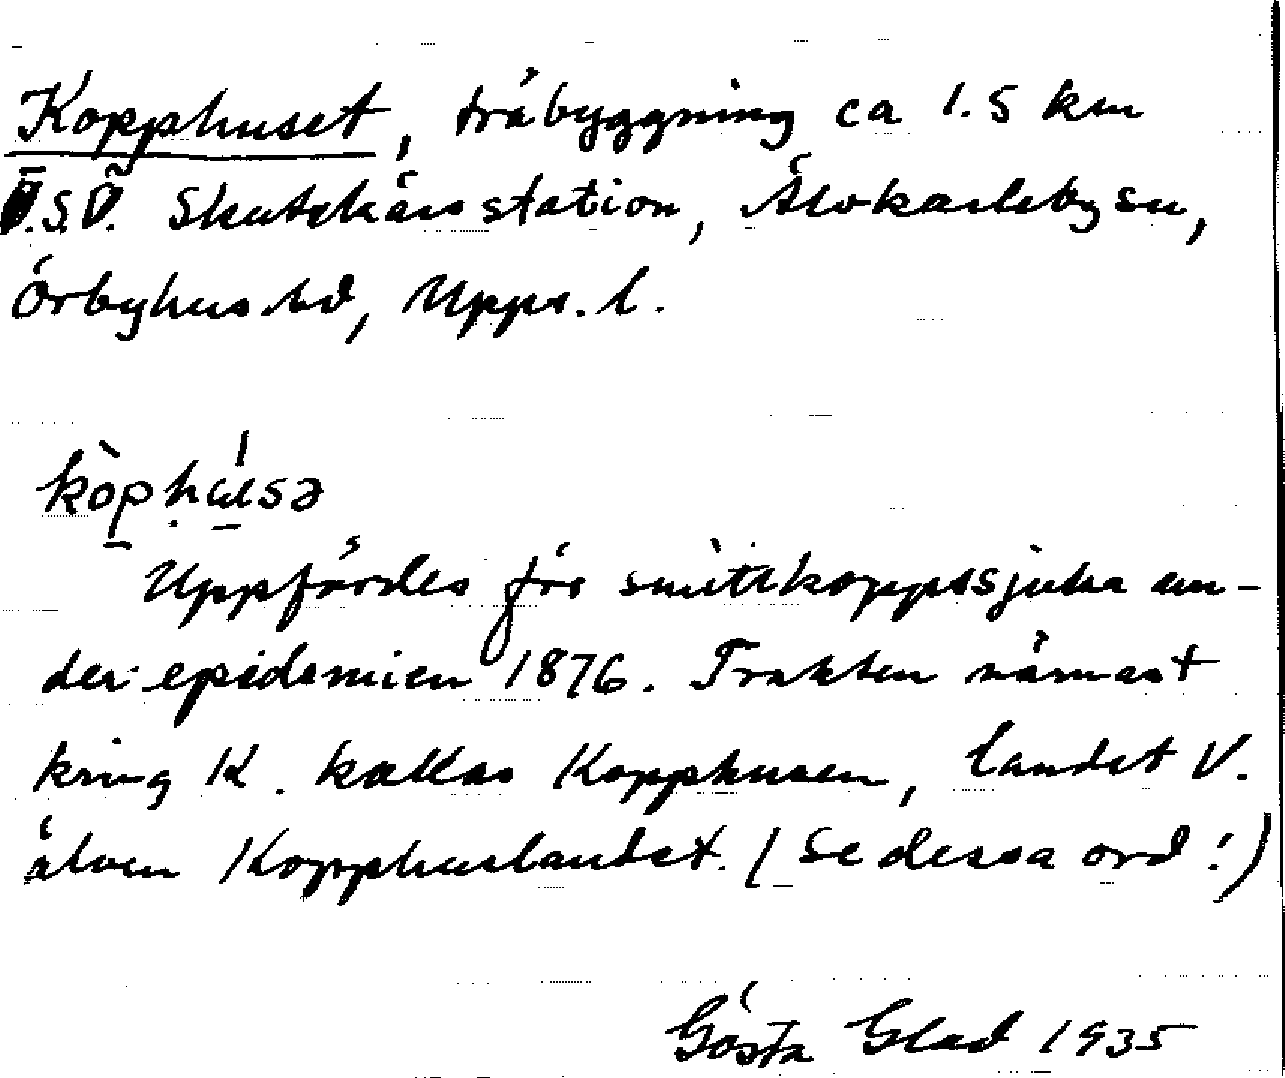 Kopphuset, träbyggning ca 1.5 km
Ö.S.Ö. Skutskärs station, Älvkarleby sn,
Örbyhus hd, Upps. l.
Uppfördes för smittkoppssjuka un-
der epidemien 1876. Trakten närmast
kring K. kallas Kopphusen, landet V.
älven Kopphuslandet. (Se dessa ord!)
Gösta Glad 1935